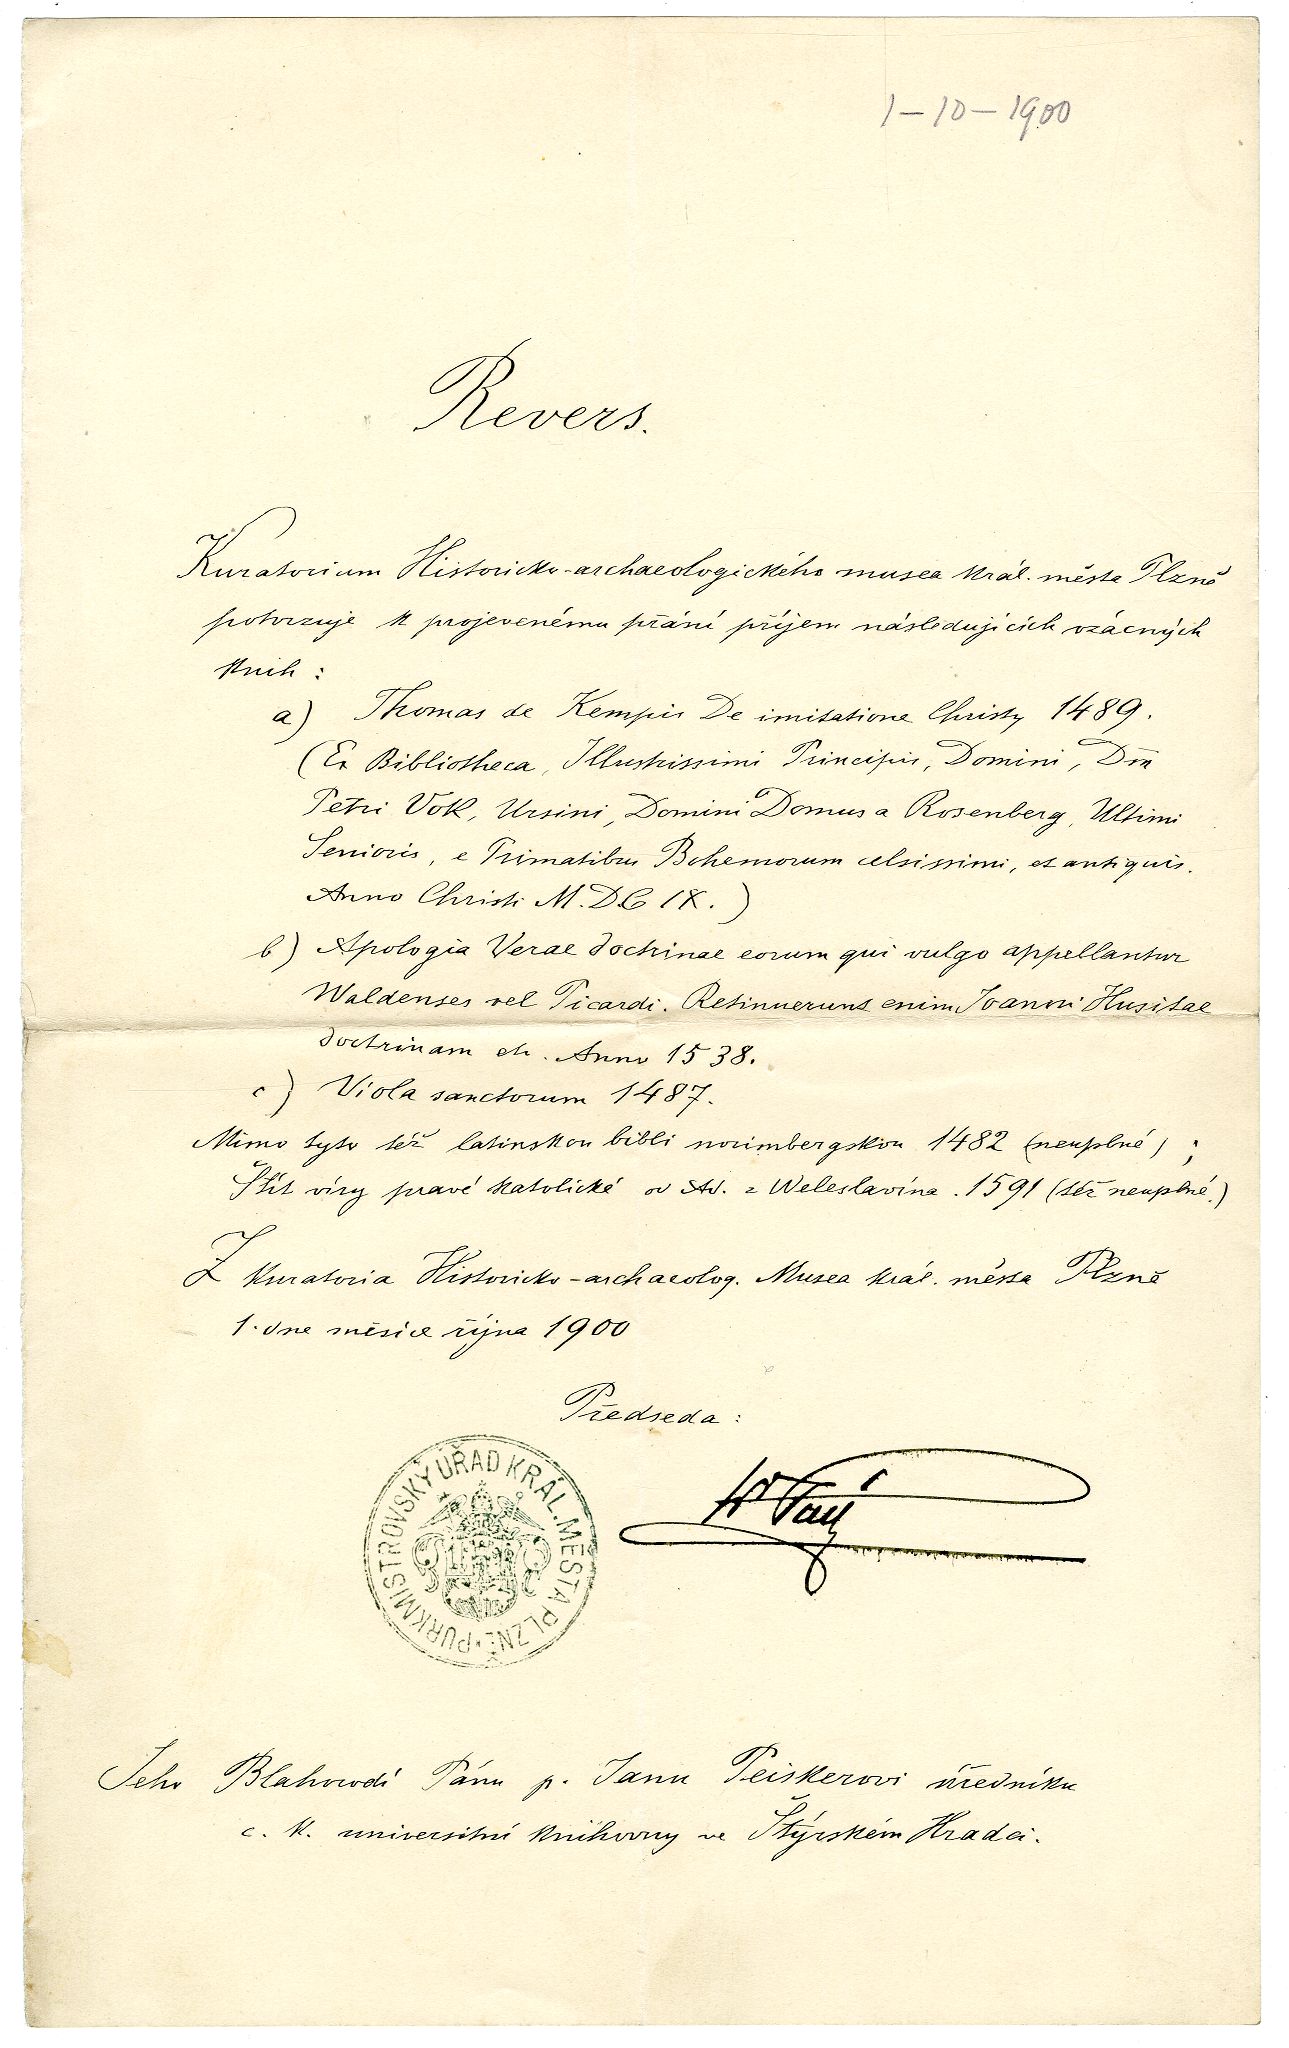 1-10-1900
Revers.
Kuratorium Historicko-archaeologického musea král. města Plzně
potvrzuje k projevenému přání příjem následujících vzácných
knih :
a) Thomas de Kempis De imitatione Christy 1489.
(Ex Bibliotheca, Illustrissimi Principis, Domini, Dn̄
Petri Vok, Ursini, Domini Domus a Rosenberg, Ultimi
Senioris, e Primatibus Bohemorum celsissimi, et antiquis.
Anno Christi M.DC IX.)
b) Apologia Verae doctrinae eorum qui vulgo appellantur
Waldenses vel Picardi. Retinuerunt enim Joanni Husitae
doctrinam etc. Anno 1538.
c) Viola sanctorum 1487.
Mimo tyto též latinskou bibli norimbergskou 1482 (neuplné) ;
Štít víry pravé katolické od Ad. z Weleslavína. 1591 (též neuplné.)
Z kuratoria Historicko-archaeolog. Musea král. města Plzně
1. dne měsíce října 1900
Předseda :
PURKMISTROVSKÝ ÚŘAD KRÁL. MĚSTA PLZNĚ
Jeho Blahorodí Pánu p. Janu Peiskerovi úředníku
c. k. universitní knihovny ve Štýrském Hradci.